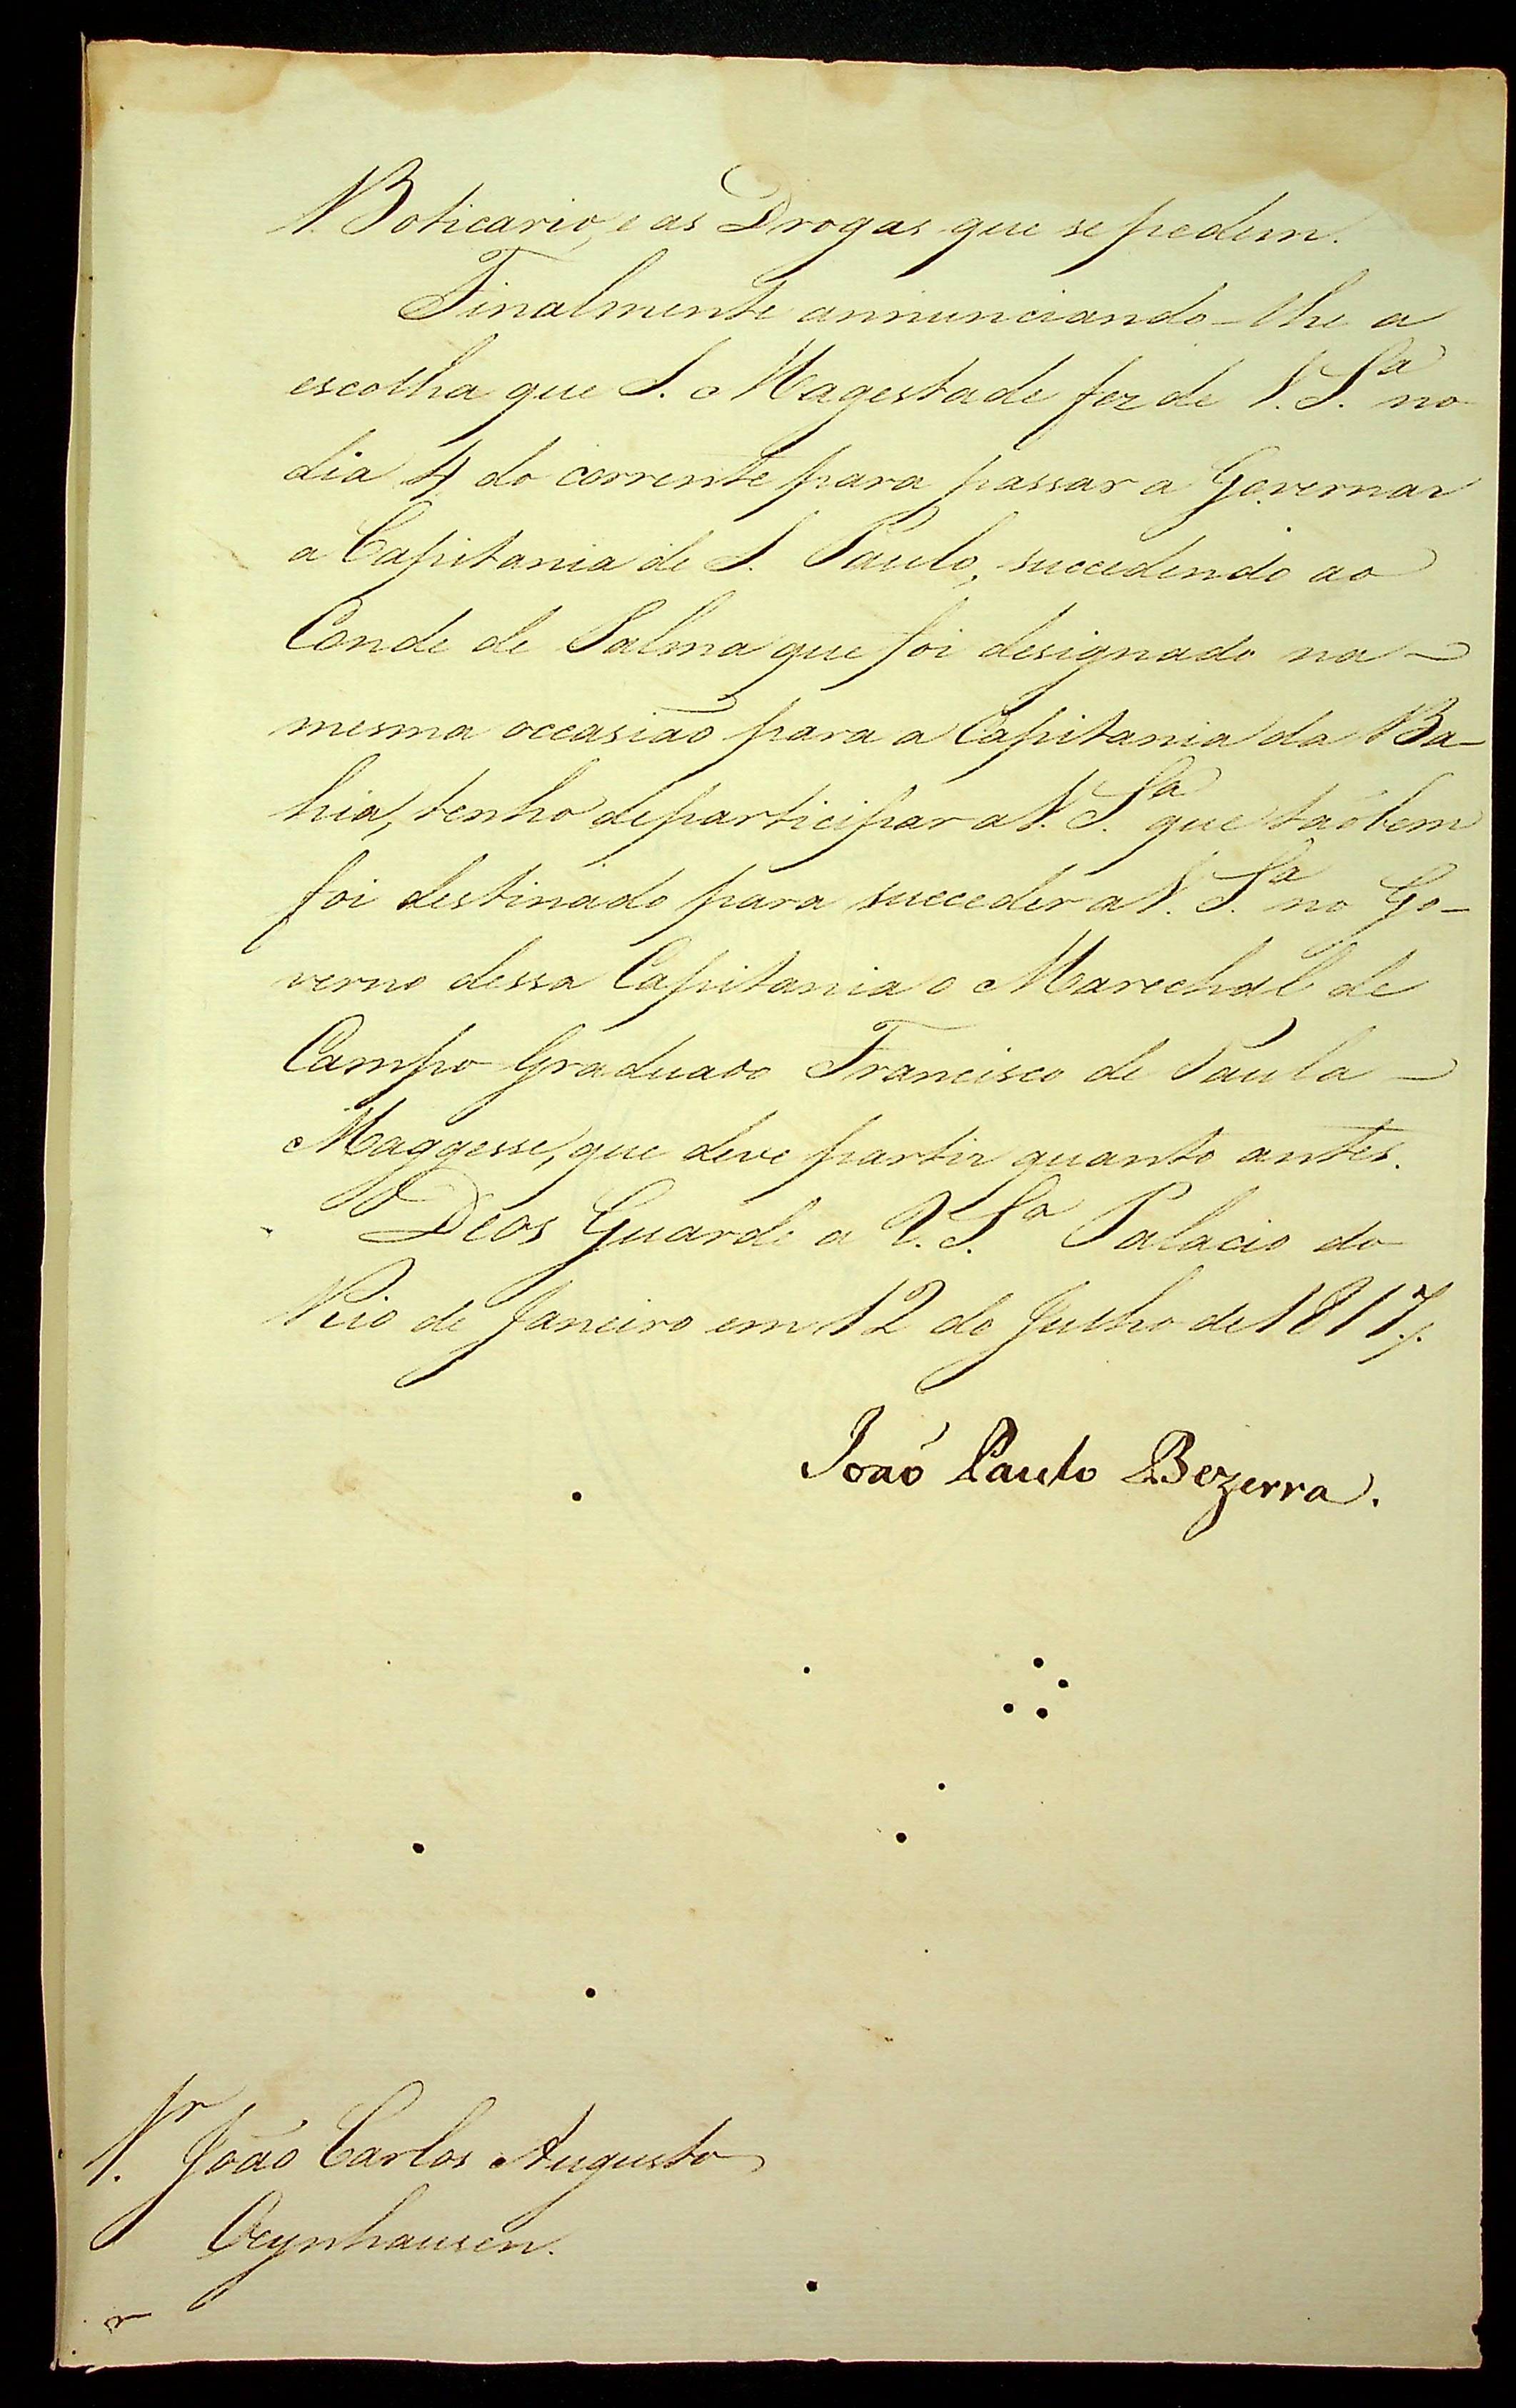 Boticario, e as Drogas que se pedem.
Finalmente annunciando-lhe a
escolha que S. Magestade fez de V. S.ª no
dia 4 do corrente para passar a Governar
a Capitania de S. Paulo, succedendo ao
Conde de Palma que foi designado na
mesma occasião para a Capitania da Ba-
hia, tenho de participar a V. S.ª que tãobem
foi destinado para succeder a V. S.ª no Go-
verno dessa Capitania o Marechal de
Campo Graduado Francisco de Paula
Maggesse, que deve partir quanto antes.
Deos Guarde a V. S.ª Palacio do
Rio de Janeiro em 12 de Julho de 1817.
Joaõ Paulo Bezerra.
S.r João Carlos Augusto
Oeynhausen.